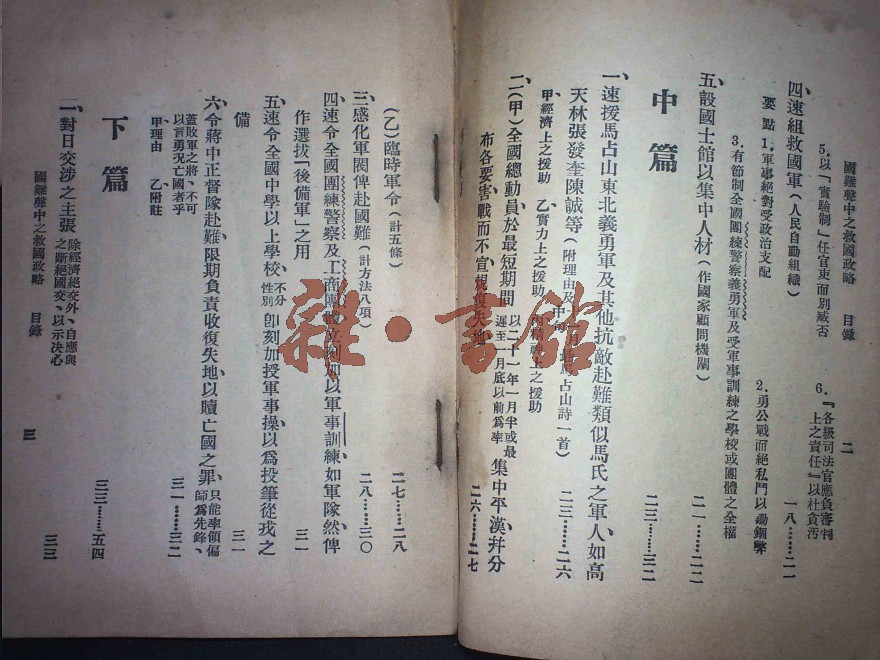 國難聲中之救國政略 目錄 二
5.以「實騐制」任官吏而别臧否
6.『各級司法官應負審判上之責任』以杜貪汚
四、速組救國軍(人民自動組織) 一八……二一
要點 1.軍事絕對受政治支配
2.勇公戰而絕私鬥以勵錮弊
3.有節制全國團練警察義勇軍及受軍事訓練之學校或團體之全權
五、設國士館以集中人材(作國家顧問機關) 二一……二二
中篇 二三……三二
一、速援馬占山東北義勇軍及其他抗敵赴難類似馬氏之軍人、如高
天林張發奎陳誠等(附理由及 馬占山詩一首) 二三……二六
甲、經濟上之援助 乙、實力上之援助 上之援助
二、(甲)全國總動員於最短期間 以二十一年一月半或最遲至一月底以前爲率 集中平漢幷分
布各要害戰而不宣 復失地 二六……二七
(乙)臨時軍令(計五條) 二七……二八
三、感化軍閥俾赴國難(計方法八項) 二八……三〇
四、速令全國團練警察及工商團 立刻加以軍事訓練、如軍隊然俾
作選拔「後備軍」之用 三一
五、速令全國中學以上學校、不分性别 卽刻加授軍事操、以爲投筆從戎之
備 三一
六、令蔣中正督隊赴難限期負責收復失地、以贖亡國之罪、只能率領偏師爲先鋒、
蓋敗軍之將、不可以言勇况亡國者乎
甲理由 乙附註 三一……三二
下篇 三三……五四
一、對日交涉之主張 除經濟絕交外、自應與之斷絕國交、以示决心 三三
國難聲中之救國政略 目錄 三
雜·書館